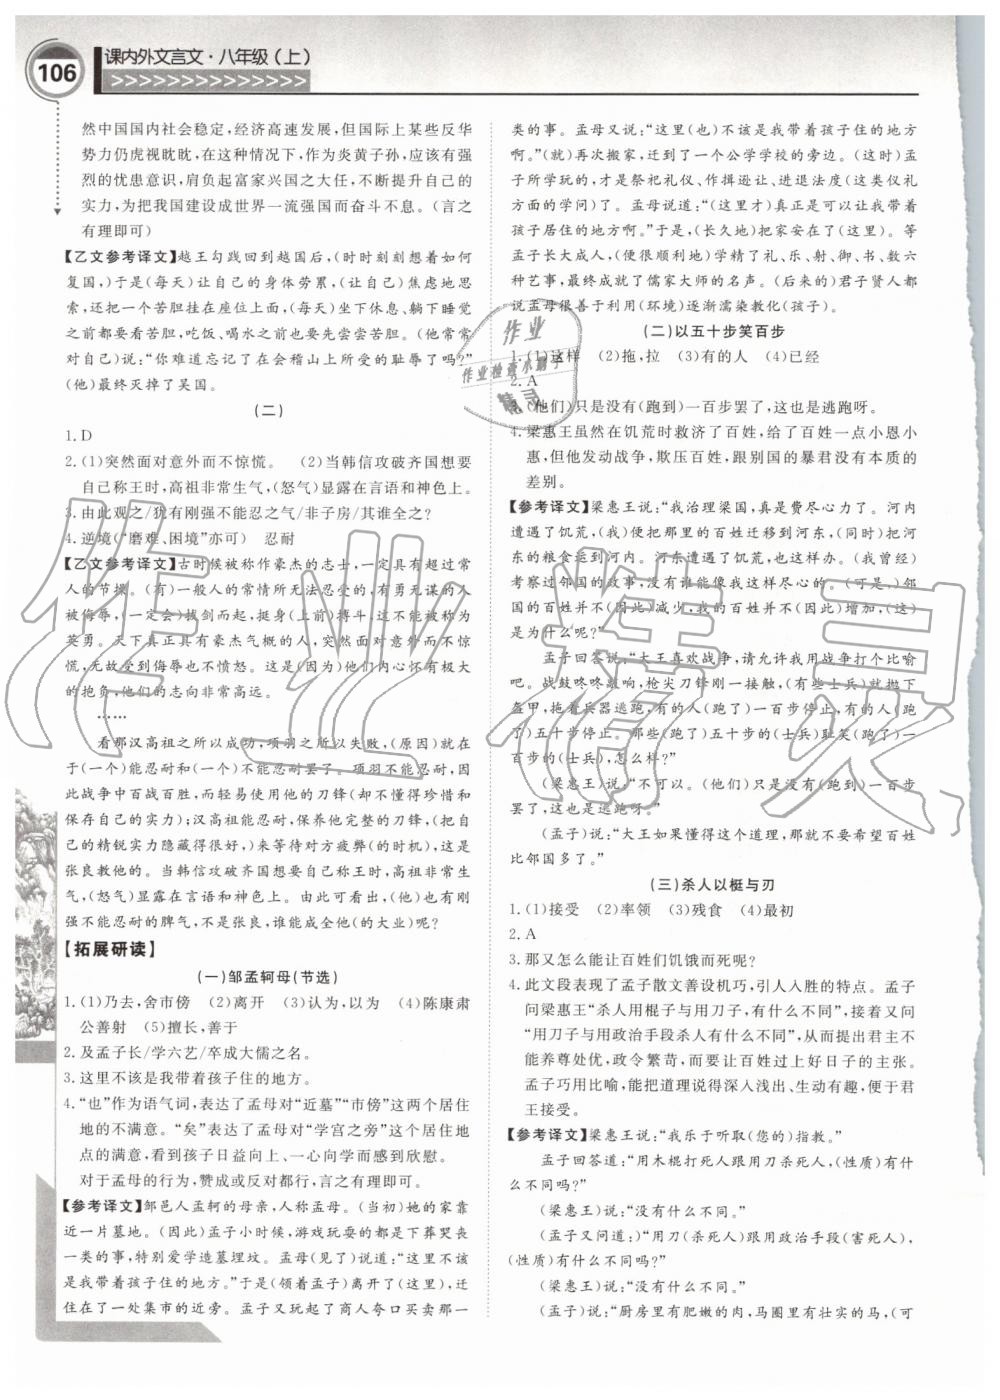 106
课内外文言文·八年级(上)
然中国国内社会稳定,经济高速发展,但国际上某些反华
势力仍虎视眈眈,在这种情况下,作为炎黄子孙,应该有强
烈的忧患意识,肩负起富家兴国之大任,不断提升自己的
实力,为把我国建设成世界一流强国而奋斗不息。(言之
有理即可)
【乙文参考译文】越王勾践回到越国后,(时时刻刻想着如何
复国,)于是(每天)让自己的身体劳累,(让自己)焦虑地思
索,(还)把一个苦胆挂在座位上面,(每天)坐下休息、躺下睡觉
之前都要看苦胆,吃饭、喝水之前也要先尝尝苦胆。(他常常
对自己)说:“你难道忘记了在会稽山上所受的耻辱了吗?”
(他)最终灭掉了吴国。
(二)
1. D
2. (1)突然面对意外而不惊慌。 (2)当韩信攻破齐国想要
自己称王时,高祖非常生气,(怒气)显露在言语和神色上。
3. 由此观之/犹有刚强不能忍之气/非子房/其谁全之?
4. 逆境(“磨难、困境”亦可) 忍耐
【乙文参考译文】古时候被称作豪杰的志士,一定具有超过常
人的节操。(有)一般人的常情所无法忍受的,有勇无谋的人
被侮辱,一定会)拔剑而起,挺身(上前)搏斗,这不能够被称为
英勇。天下真正具有豪杰气概的人,突然面对意外而不惊
慌,无故受到侮辱也不愤怒。这是(因为)他们内心怀有极大
的抱负,他们的志向非常高远。
……
看那汉高祖之所以成功,项羽之所以失败,(原因)就在
于(一个)能忍耐和(一个)不能忍耐罢了。项羽不能忍耐,因
此战争中百战百胜,而轻易使用他的刀锋(却不懂得珍惜和
保存自己的实力);汉高祖能忍耐,保养他完整的刀锋,(把自
己的精锐实力隐藏得很好,)来等待对方疲弊(的时机),这是
张良教他的。当韩信攻破齐国想要自己称王时,高祖非常生
气,(怒气)显露在言语和神色上。由此可看出,(他)也有刚
强不能忍耐的脾气,不是张良,谁能成全他(的大业)呢?
【拓展研读】
(一)邹孟轲母(节选)
1. (1)乃去,舍市傍 (2)离开 (3)认为,以为 (4)陈康肃
公善射 (5)擅长,善于
2. 及孟子长/学六艺/卒成大儒之名。
3. 这里不该是我带着孩子住的地方。
4. “也”作为语气词,表达了孟母对“近墓”“市傍”这两个居住
地的不满意。“矣”表达了孟母对“学宫之旁”这个居住地
点的满意,看到孩子日益向上、一心向学而感到欣慰。
对于孟母的行为,赞成或者反对,言之有理即可。
【参考译文】邹邑人孟轲的母亲,人称孟母。(当初)她的家靠
近一片墓地。(因此)孟子小时候,游戏玩耍的都是下葬哭丧
一类的事,特别爱学造墓埋坟。孟母(见了)说道:“这里不该
是我带着孩子住的地方。”于是(领着孟子)离开了(这里),迁
住在了一处集市的近旁。孟子又玩起了商人夸口买卖那一
类的事。孟母又说:“这里(也)不该是我带着孩子住的地方
啊。”(就)再次搬家,迁到了一个公学学校的旁边。(这时)孟
子所学玩的,才是祭祀礼仪、作揖逊让、进退法度(这类仪礼
方面的学问)了。孟母说道:“(这里才)真正是可以带着我
孩子居住的地方啊。”于是,(长久地)把家安在了(那里)。等
孟子长大成人,(便很顺利地)学精了礼、乐、射、御、书、数六
种艺事,最终成就了儒家大师的名声。(后来的)君子贤人都
说孟母很善于利用(环境)逐渐濡染教化(孩子)。
(二)以五十步笑百步
1. (1)这样 (2)拖,拉 (3)有的人 (4)已经
2. A
3. (他们)只是没有(跑到)一百步罢了,这也是逃跑呀。
4. 梁惠王虽然在饥荒时救济了百姓,给了百姓一点小恩小
惠,但他发动战争,欺压百姓,跟别国的暴君没有本质的
差别。
【参考译文】梁惠王说:“我治理梁国,真是费尽心力了。河内
遭遇了饥荒,(我)便把那里的百姓迁移到河东,(同时)把河
东的粮食运到河内。河东遭遇了饥荒,也这样办。(我曾经)
考察过邻国的政事,没有谁能像我这样尽心的。(可是,)邻
国的百姓并不(因此)减少,我的百姓并不(因此)增加,(这)
是为什么呢?”
孟子回答说:“大王真欢喜战争,请允许我用战争打个比喻
吧。战鼓咚咚敲响,枪尖刀锋刚一接触,(有些士兵)就抛下
盔甲,拖着兵器逃跑,有的人(跑了)一百步停止,有的人(跑
了)五十步停止。那些(跑了)五十步的(士兵)耻笑(跑了)一
百步的(士兵),怎么样?”
(梁惠王)说:“不可以。(他们)只是没有(跑到)一百步
罢了,这也是逃跑呀。”
(孟子)说:“大王如果懂得这个道理,那就不要希望百姓
比邻国多了。”
(三)杀人以梃与刃
1. (1)接受 (2)率领 (3)残食 (4)最初
2. A
3. 那又怎么能让百姓们饥饿而死呢?
4. 此文段表现了孟子散文善设机巧,引人入胜的特点。孟子
问梁惠王“杀人用棍子与用刀子,有什么不同”,接着又问
“用刀子与用政治手段杀人有什么不同”,从而提出君主不
能养尊处优,政令繁苛,而要让百姓过上好日子的主张。
孟子巧用比喻,能把道理说得深入浅出、生动有趣,便于君
王接受。
【参考译文】梁惠王说:“我乐于听取(您的)指教。”
孟子回答道:“用木棍打死人跟用刀杀死人,(性质)有什
么不同?”
(梁惠王)说:“没有什么不同。”
(孟子又问道):“用刀(杀死人)跟用政治手段(害死人),
(性质)有什么不同吗?”
(梁惠王)说:“没有什么不同。”
(孟子)说:“厨房里有肥嫩的肉,马圈里有壮实的马,(可
作业
作业检查小帮手
精灵
作业精灵